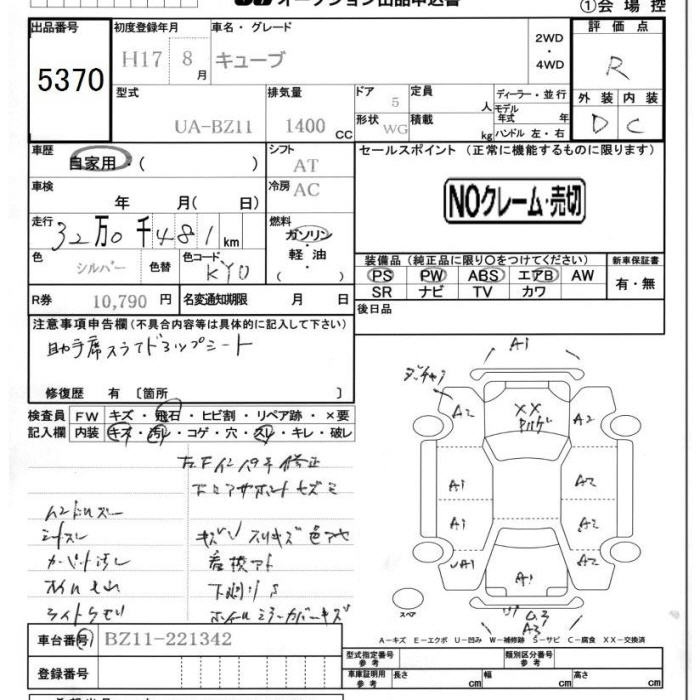 オークション出品申込書
①会場控
出品番号 初度登録年月 車名・グレード 評価点
5370 H17 8月 キューブ 2WD・4WD R
型式 排気量 ドア 定員 ディーラー・並行 外装 内装
UA-BZ11 1400 CC 5 人 モデル年式 年 D C
形状 WG 積載 kg ハンドル 左・右
車歴 自家用・( ) シフト AT セールスポイント (正常に機能するものに限ります)
車検 年 月( 日) 冷房 AC NOクレーム・売切
走行 32万0千481km 燃料 ガソリン・軽油・( )
色 シルバー 色替 色コード KY0
装備品 (純正品に限り○をつけてください) 新車保証書
PS PW ABS エアB AW 有・無
SR ナビ TV カワ
R券 10,790円 名変通知期限 月 日 後日品
注意事項申告欄 (不具合内容等は具体的に記入して下さい)
助手席スライドアップシート
修復歴 有 〔箇所 〕
検査員記入欄 FW キズ・飛石・ヒビ割・リペア跡・×要
内装 キズ・汚レ・コゲ・穴・スレ・キレ・破レ
シートスレ
カーペット汚レ
ライトクモリ
看板アト
下廻りS
ホイールミラーカバーキズ
A1
A2 XX A2
A1 A2
A1 A2
UA1 A1 A2
A3
スペア
A-キズ E-エクボ U-凹み W-補修跡 S-サビ C-腐食 XX-交換済
車台番号 BZ11-221342
登録番号
型式指定番号 参考 類別区分番号 参考
車庫証明用 参考 長さ cm 幅 cm 高さ cm